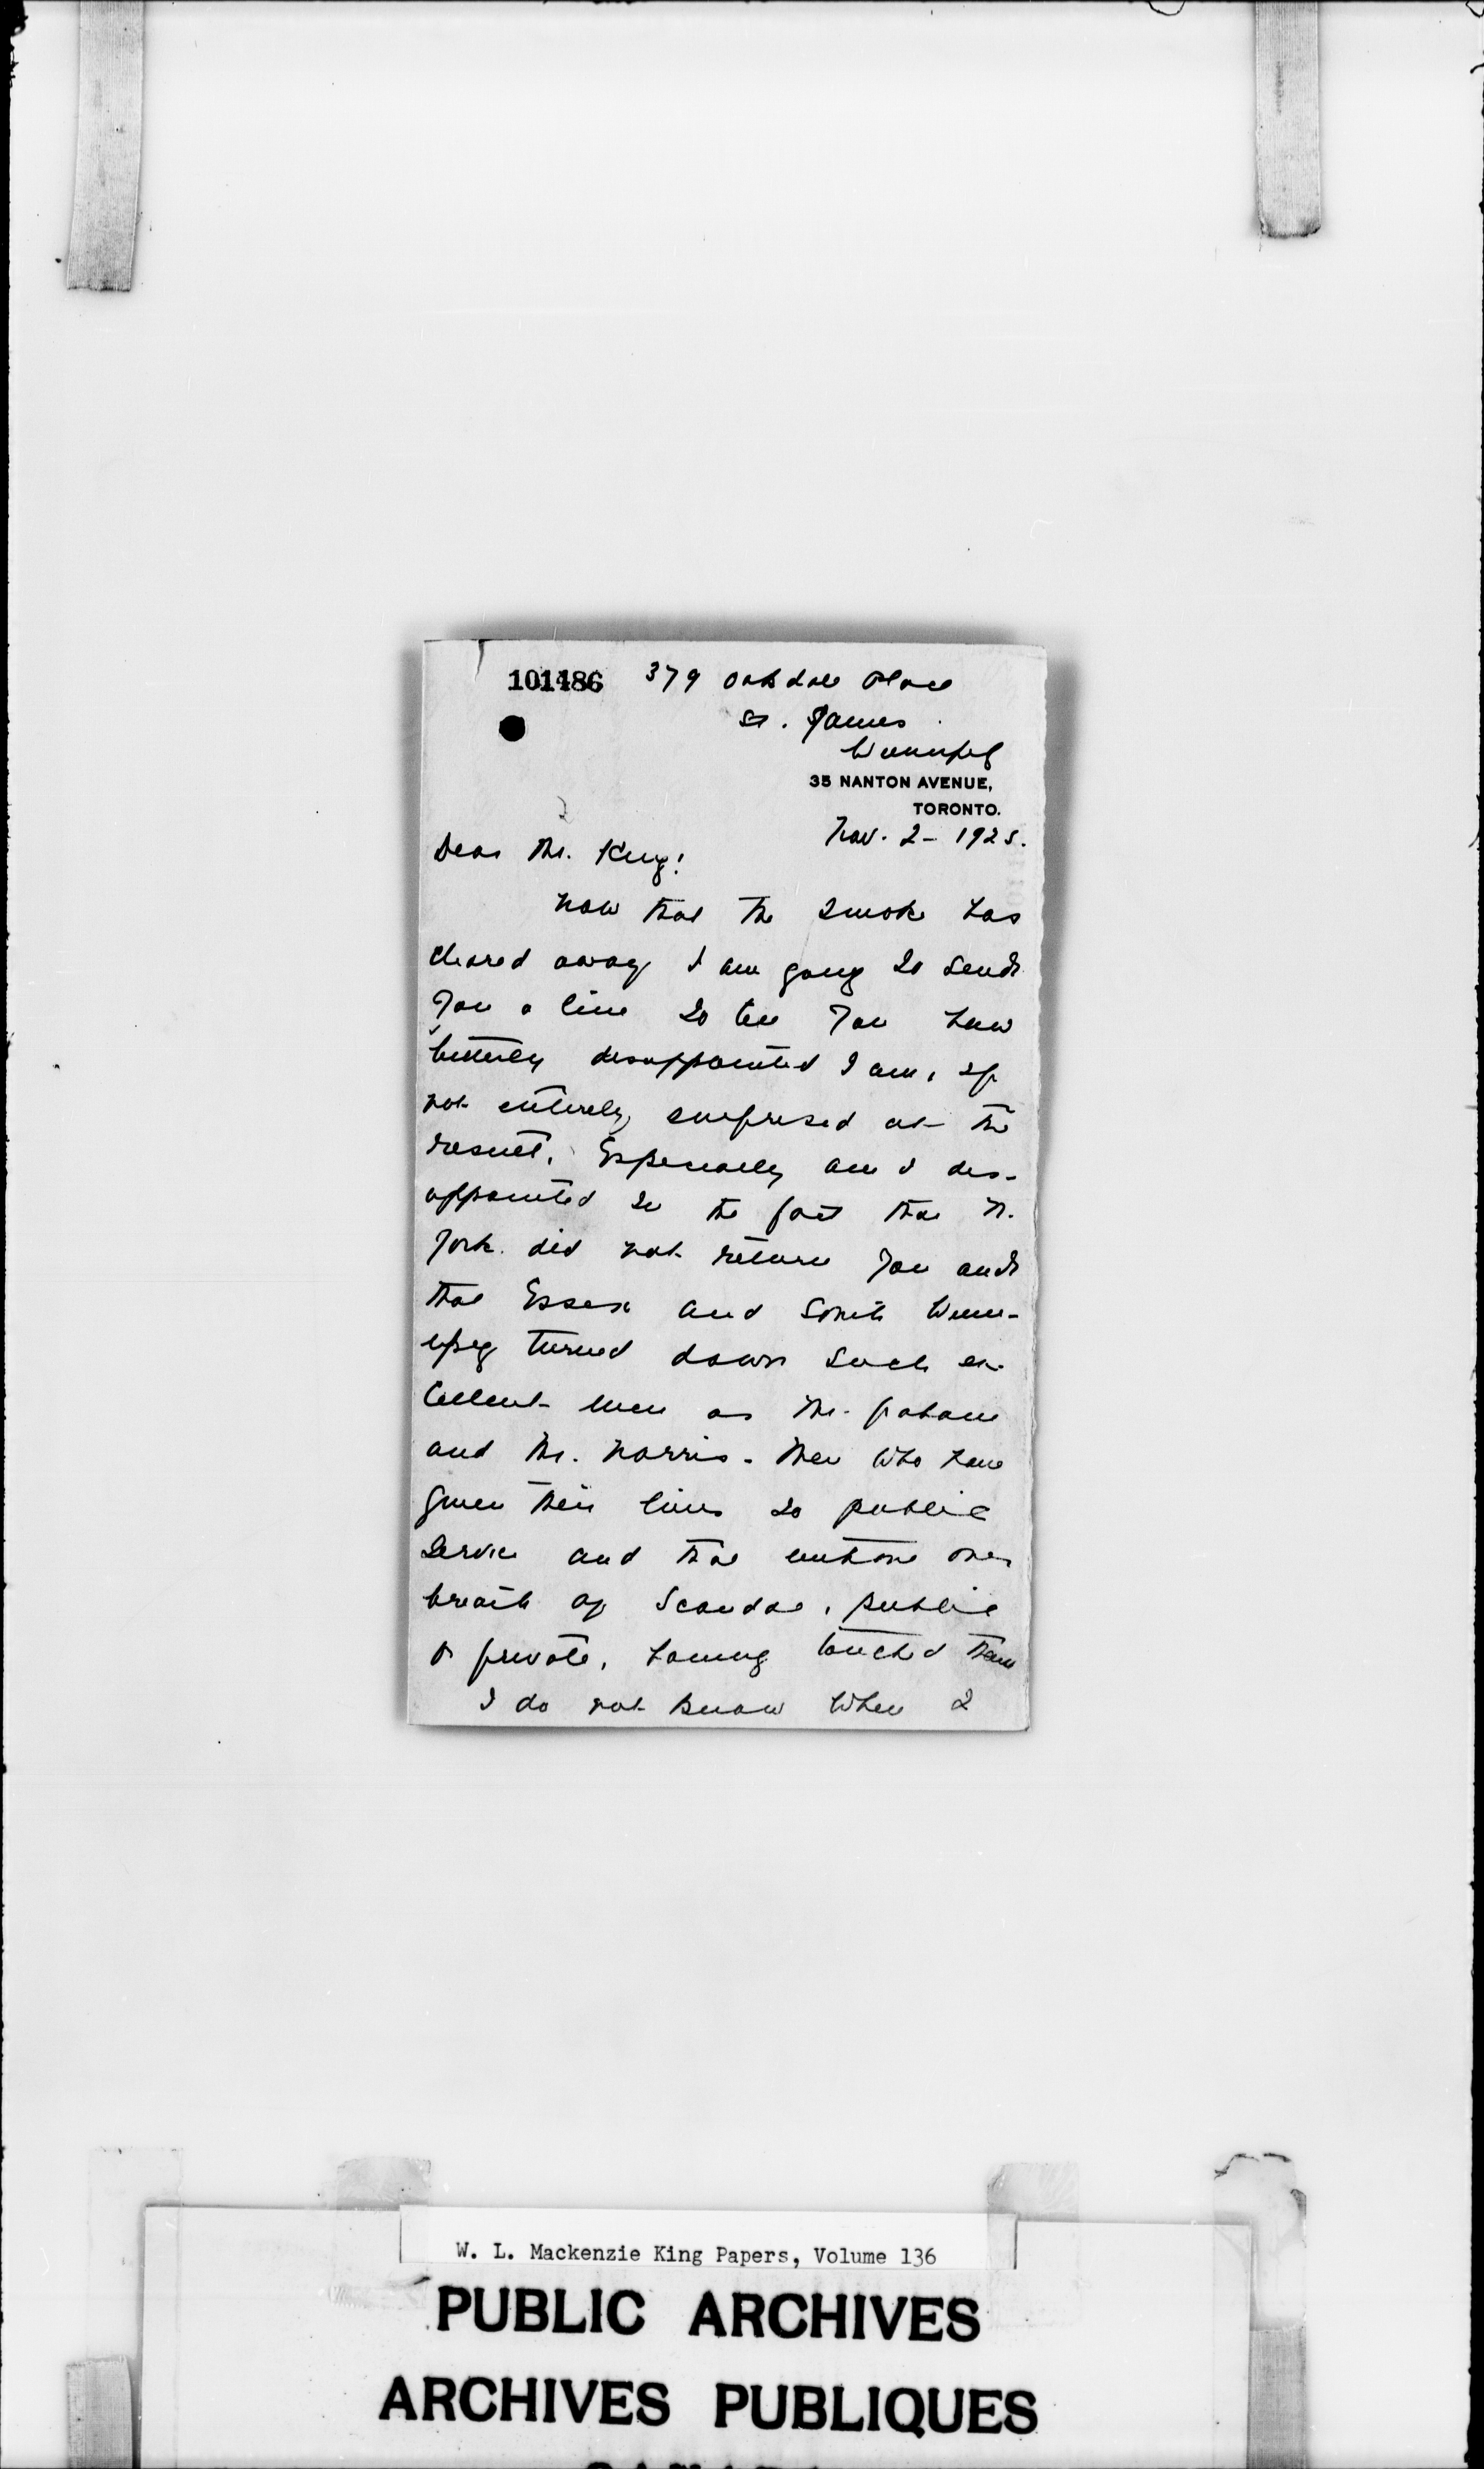 101486 379 Oakdale Place
St. James
Winnipeg
35 NANTON AVENUE,
TORONTO.
Nov. 2 - 1925.
Dear Mr. King:
Now that the smoke has
cleared away I am going to send
you a line to tell you how
bitterly disappointed I am, if
not entirely surprised at the
result. Especially am I dis-
appointed in the fact that N.
York did not return you and
that Essex and South Winn-
ipeg turned down such ex-
cellent men as Mr. Graham
and Mr. Norris. Men who have
given their lives to public
service and that without one
breath of scandal, public
or private, having touched them
I do not know when I
W. L. Mackenzie King Papers, Volume 136
PUBLIC ARCHIVES
ARCHIVES PUBLIQUES